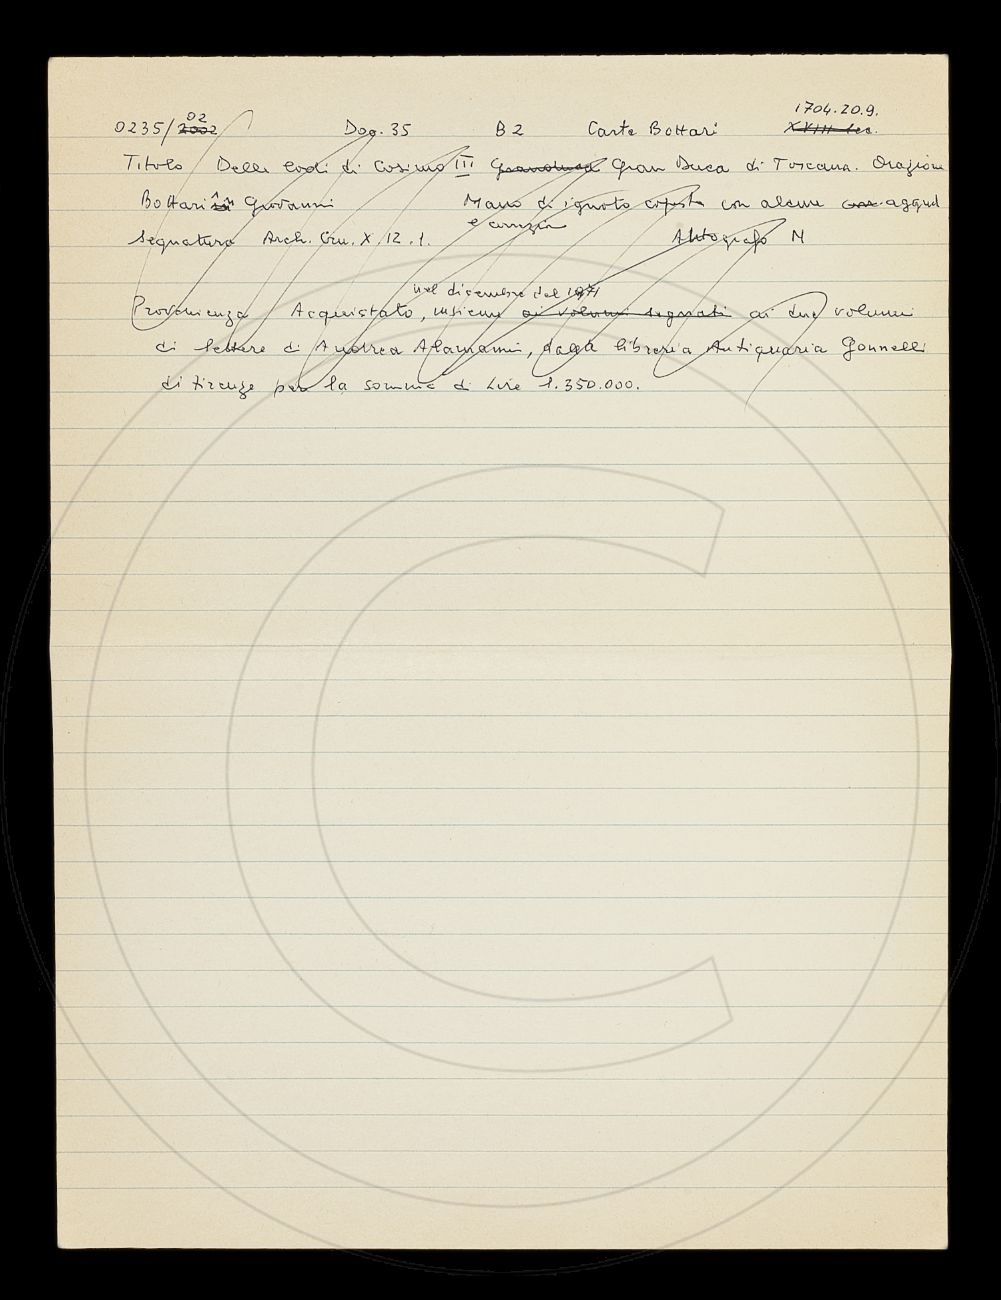 1704.20.9.
02
0235/2002 Dog. 35 B2 Carte Bottari XVIII sec.
Titolo Delle lodi di Cosimo III Granduca Gran Duca di Toscana. Orazione
Bottari Giovanni Mano di ignoto copista con alcune aggiunt
e correzioni
Segnatura Arch. Cru. X. 12. 1. Autografo N
nel dicembre del 1971
Provenienza Acquistato, insieme ai volumi segnati ai due volumi
di lettere di Andrea Alamanni, dalla libreria Antiquaria Gonnelli
di Firenze per la somma di Lire 1.350.000.